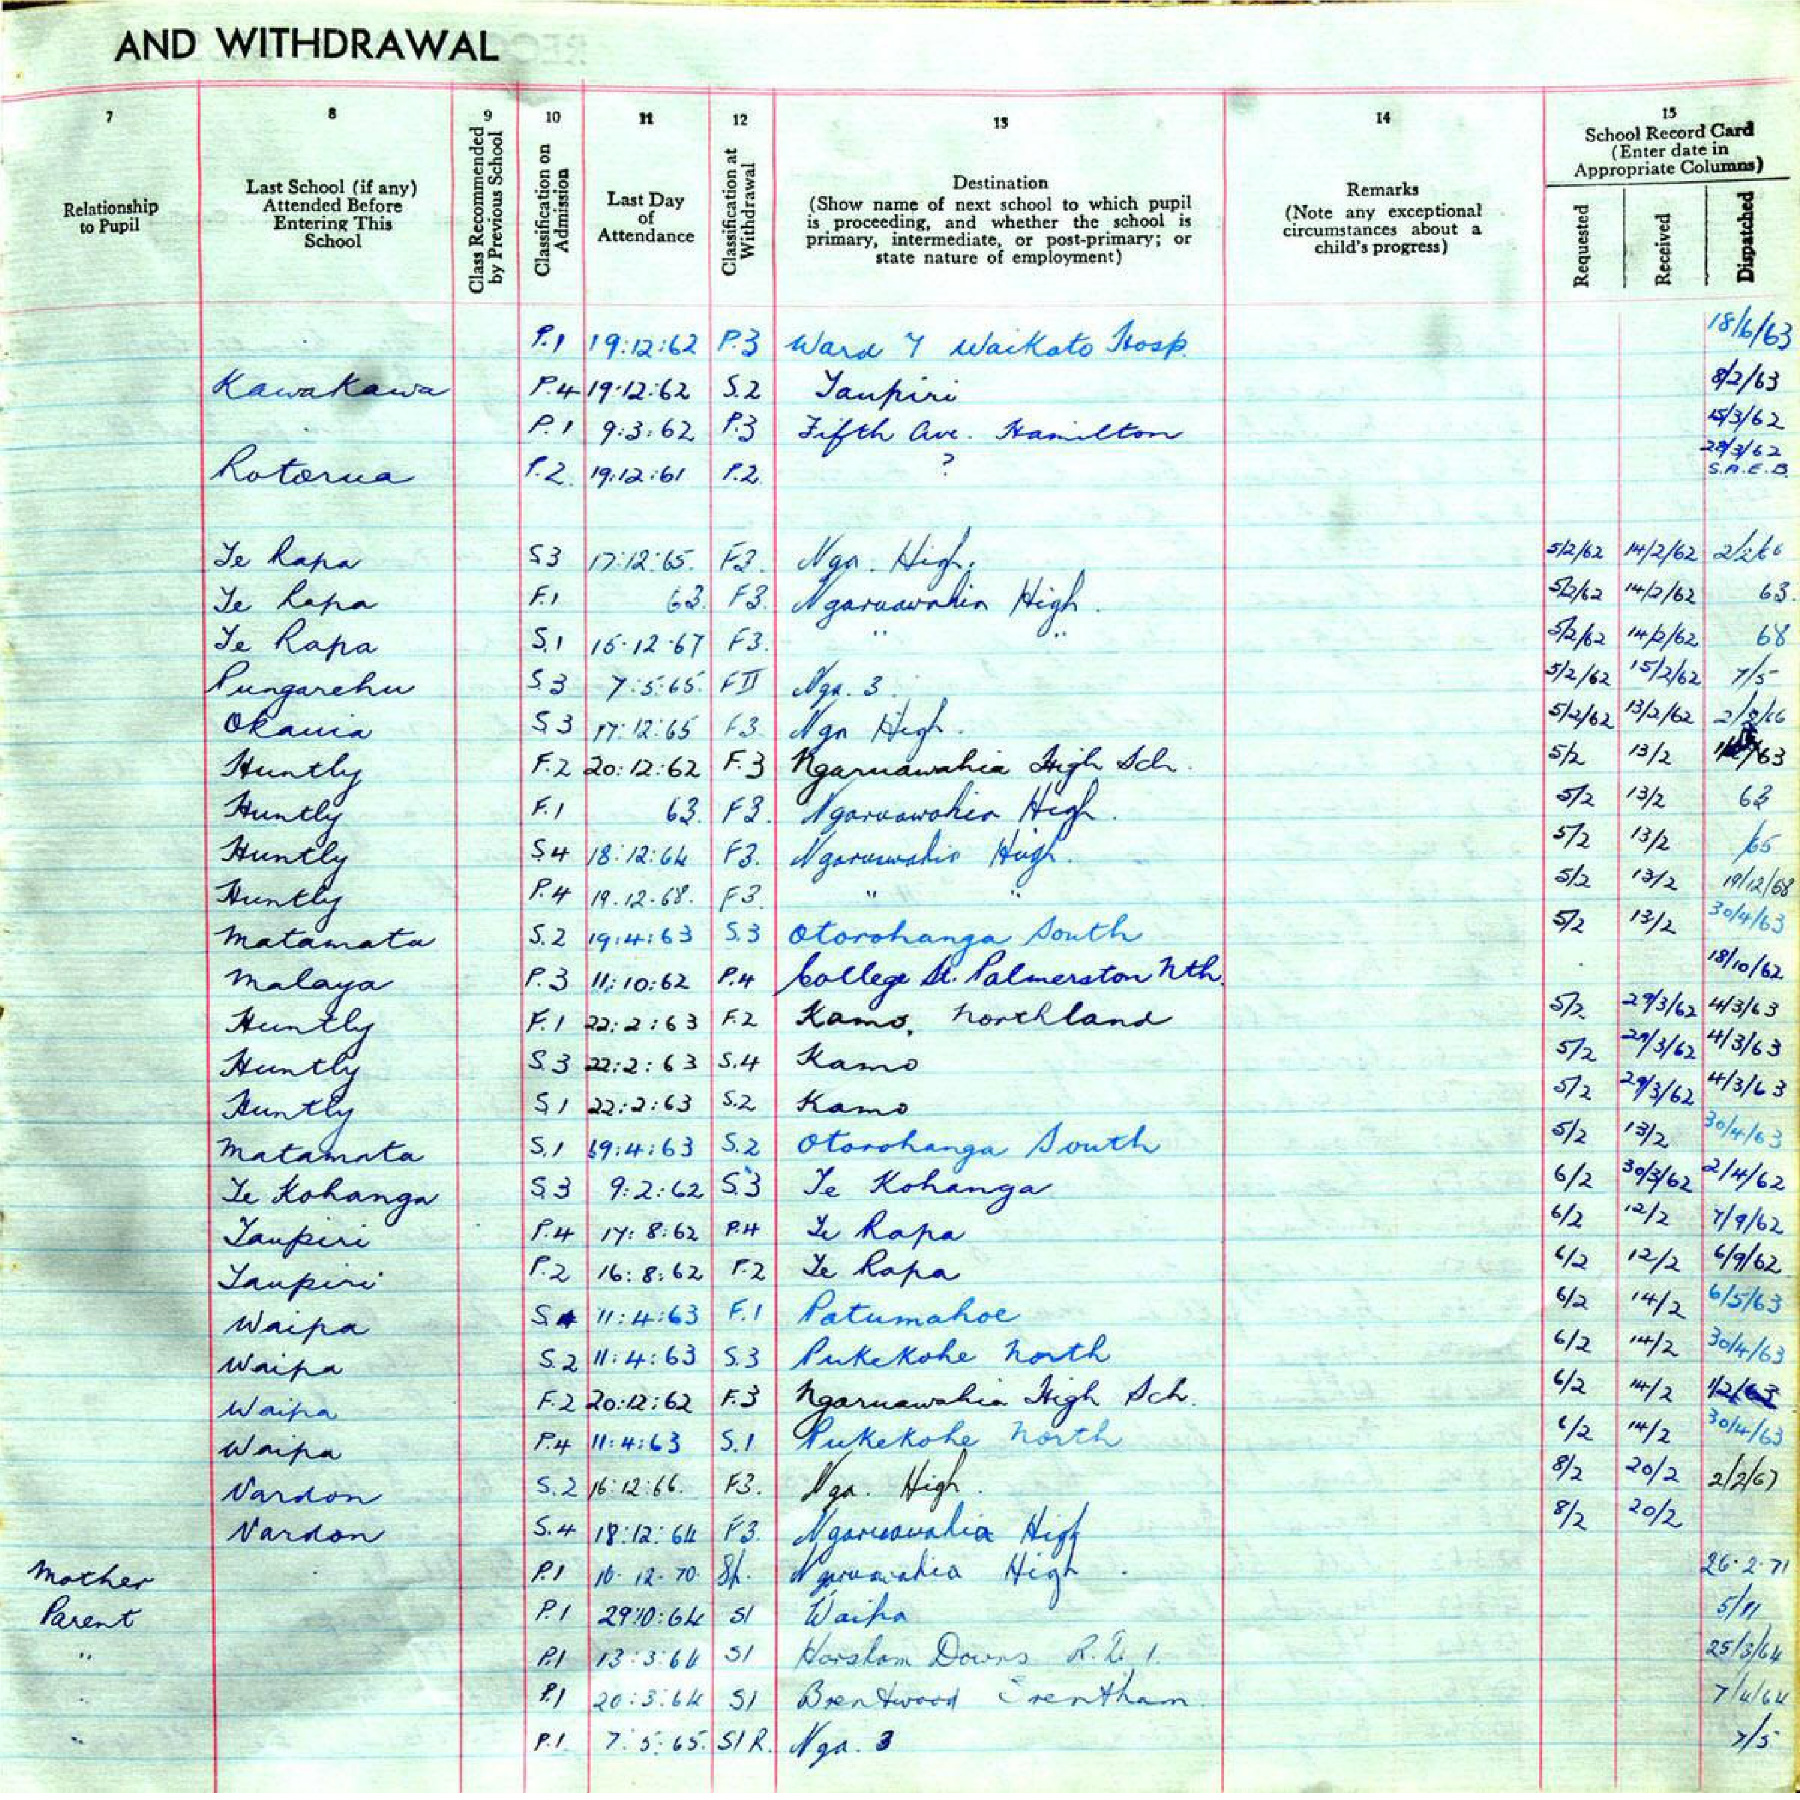 AND WITHDRAWAL
7 8 9 10 11 12 13 14 15
Relationship to Pupil
Last School (if any) Attended Before Entering This School
Class Recommended by Previous School
Classification on Admission
Last Day of Attendance
Classification at Withdrawal
Destination
(Show name of next school to which pupil is proceeding, and whether the school is primary, intermediate, or post-primary; or state nature of employment)
Remarks
(Note any exceptional circumstances about a child's progress)
School Record Card
(Enter date in Appropriate Columns)
Requested Received Dispatched
P.1 19:12:62 P.3 Ward 7 Waikato Hosp. 18/6/63
Kawakawa P.4 19.12:62 S.2 Taupiri 8/2/63
P.1 9:3:62 P.3 Fifth Ave. Hamilton 15/3/62
Rotorua P.2. 19:12:61 P.2. ? 28/3/62
S.A.E.B.
Te Rapa S3 17:12:65. F3. Nga. High. 5/2/62 14/2/62 2/2/66
Te Rapa F.1 63. F3. Ngaruawahia High. 5/2/62 14/2/62 63.
Te Rapa S.1 15.12.67 F3. " " 5/2/62 14/2/62 68
Pungarehu S.3 7:5:65. FII Nga. 3. 5/2/62 15/2/62 7/5
Okauia S3 17:12:65 F3. Nga High. 5/2/62 13/2/62
Huntly F.2 20:12:62 F.3 Ngaruawahia High Sch. 5/2 13/2
Huntly F.1 63. F3. Ngaruawahia High. 5/2 13/2 63
Huntly S4 18:12:64 F3. Ngaruawahia High. 5/2 13/2 /65
Huntly P.4 19.12.68. F3. " " 5/2 13/2 19/12/68
Matamata S.2 19:4:63 S.3 Otorohanga South 5/2 13/2 30/4/63
Malaya P.3 11:10:62 P.4 College St. Palmerston Nth. 18/10/62
Huntly F.1 22:2:63 F.2 Kamo, Northland 5/2 29/3/62 4/3/63
Huntly S3 22:2:63 S.4 Kamo 5/2 29/3/62 4/3/63
Huntly S1 22:2:63 S.2 Kamo 5/2 29/3/62 4/3/63
Matamata S.1 19:4:63 S.2 Otorohanga South 5/2 13/2 30/4/63
Te Kohanga S3 9:2:62 S.3 Te Kohanga 6/2 30/3/62 2/4/62
Taupiri P.4 17:8:62 P.4 Te Rapa 6/2 12/2 7/9/62
Taupiri P.2 16:8:62 P.2 Te Rapa 6/2 12/2 6/9/62
Waipa S.4 11:4:63 F.1 Patumahoe 6/2 14/2 6/5/63
Waipa S.2 11:4:63 S.3 Pukekohe North 6/2 14/2 30/4/63
Waipa F.2 20:12:62 F.3 Ngaruawahia High Sch. 6/2 14/2 1/2/63
Waipa P.4 11:4:63 S.1 Pukekohe North 6/2 14/2 30/4/63
Vardon S.2 16:12:66. F3. Nga. High. 8/2 20/2 2/2/67
Vardon S.4 18:12:64 F3. Ngaruawahia High 8/2 20/2
Mother P.1 10.12.70 Ngaruawahia High. 26.2.71
Parent P.1 29:10:64 S1 Waipa 5/11
" P.1 13:3:64 S1 Horsham Downs R.D.1. 25/3/64
" P.1 20:3:64 S1 Brentwood Trentham. 7/4/64
" P.1. 7:5:65. S1 R. Nga. 3 7/5